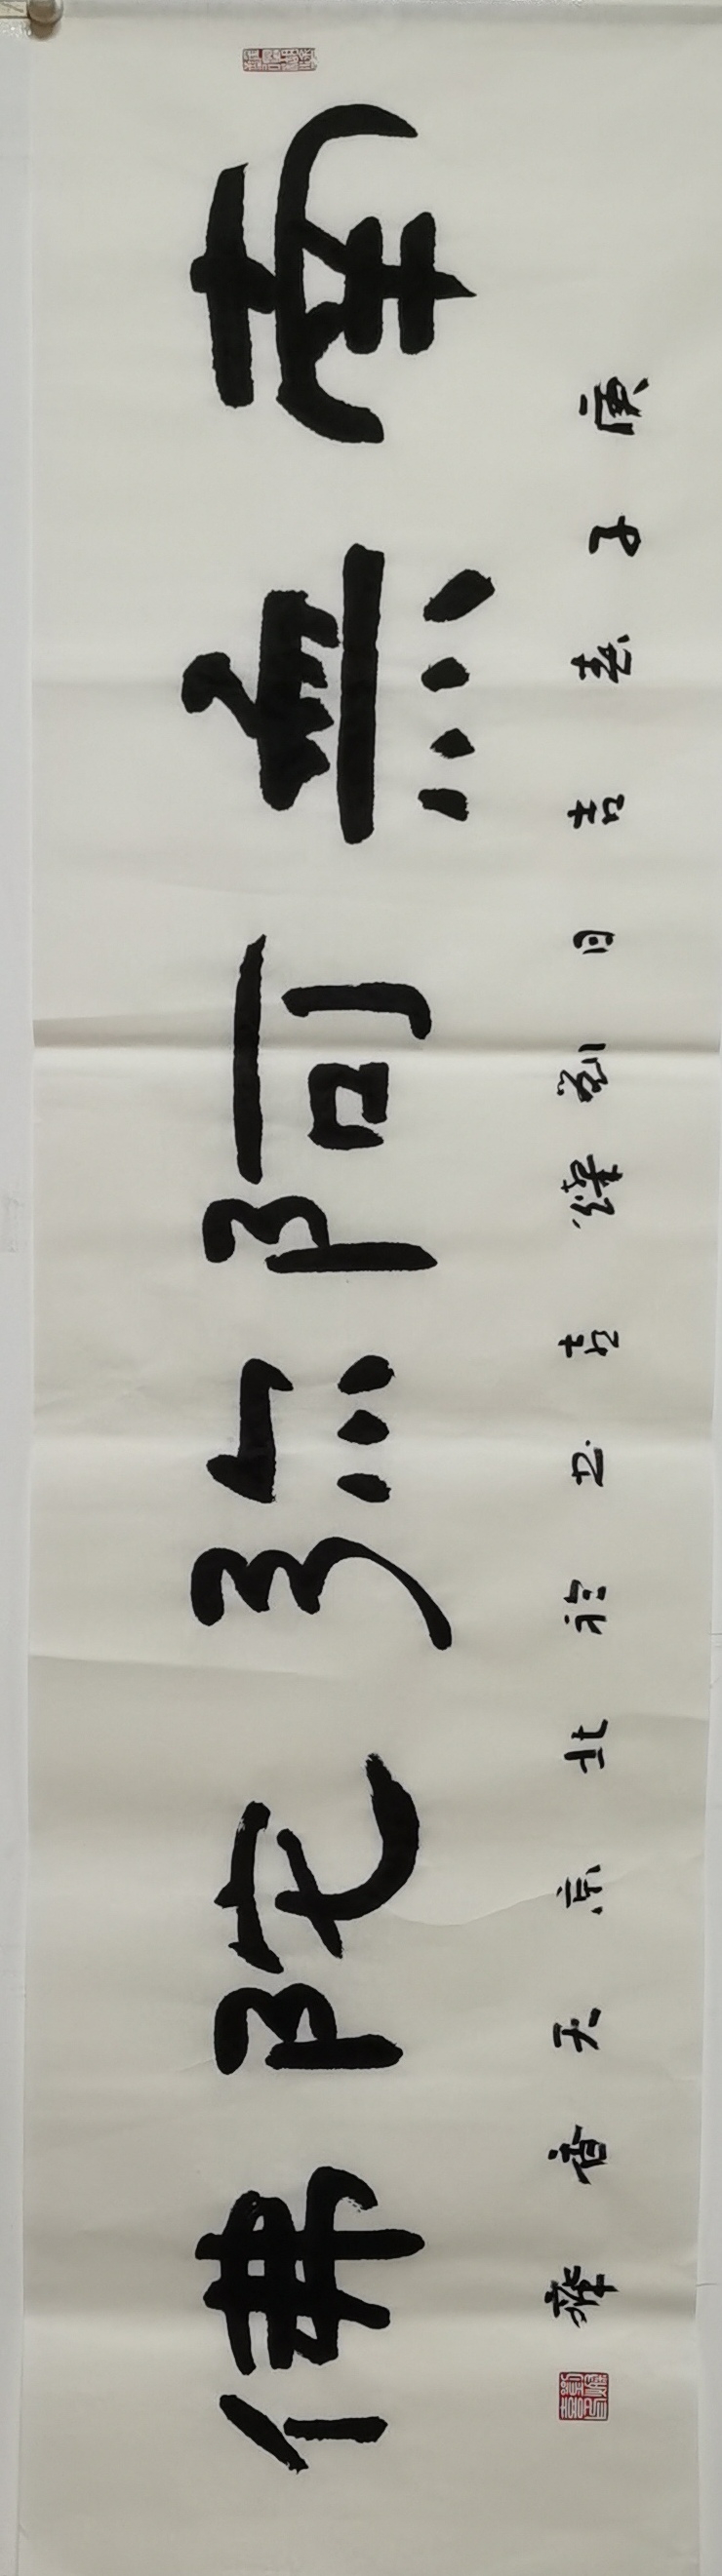 南無阿弥陀佛
庚子春吉日劉吉於北京天香齋